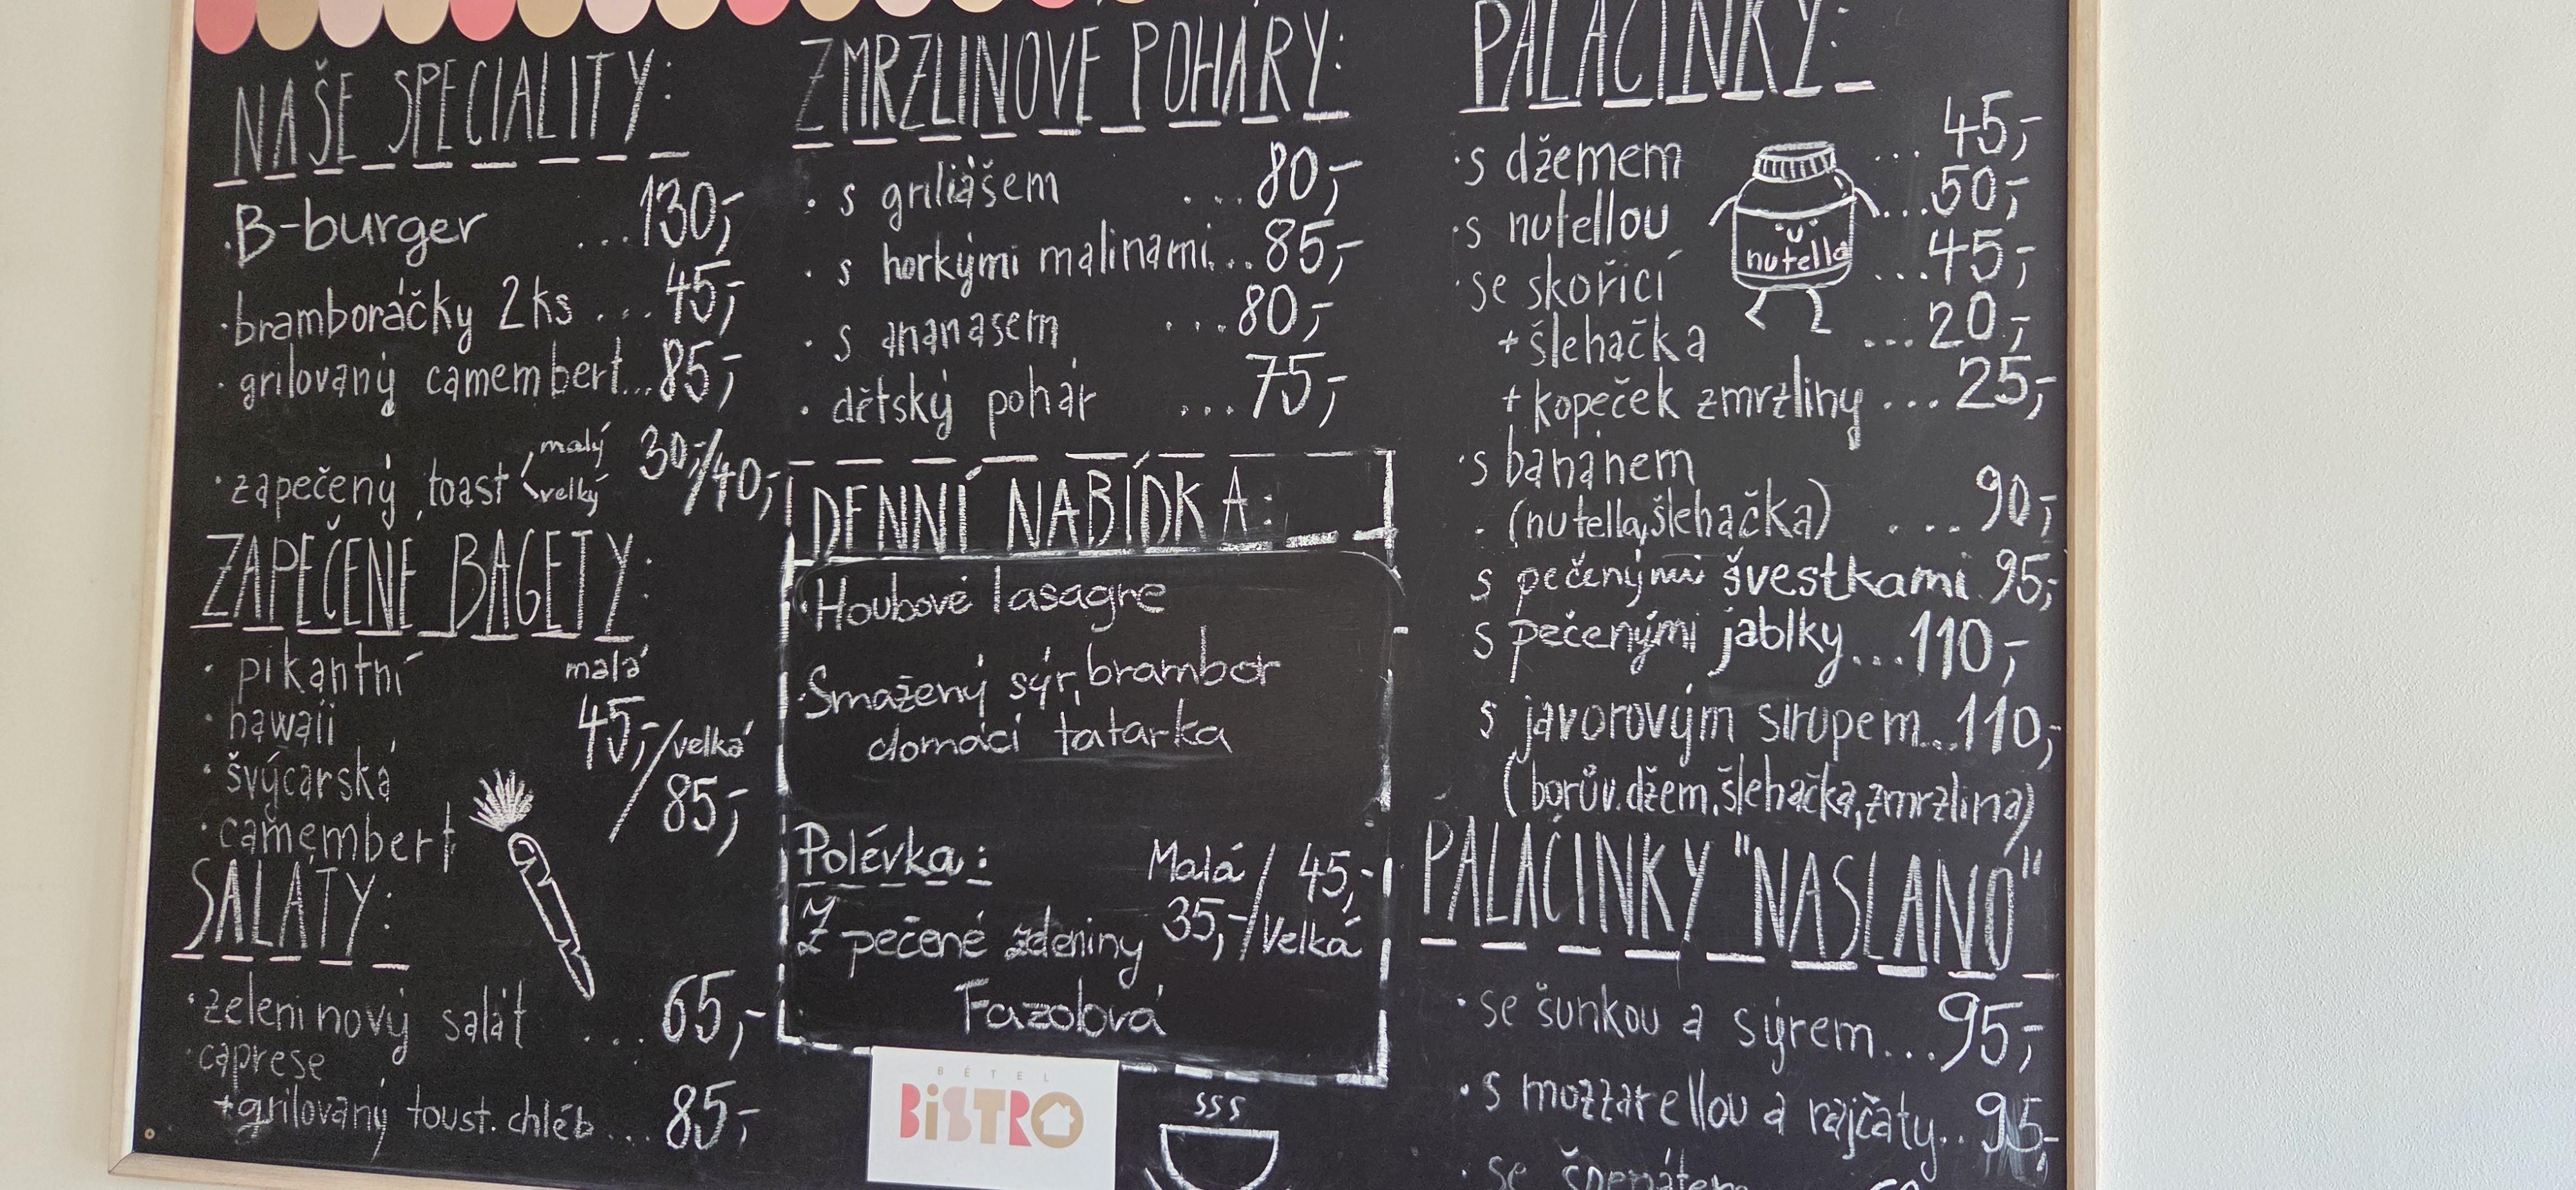 NAŠE SPECIALITY:
• B-burger ...130,-
• bramboráčky 2ks ...45,-
• grilovaný camembert...85,-
• zapečený toast malý velký 30,-/40,-
ZAPEČENÉ BAGETY:
• pikantní
• hawaii
• švýcarská
• camembert
malá
45,-/velká
85,-
SALÁTY:
• zeleninový salát ...65,-
• caprese
+grilovaný toust. chléb...85,-
ZMRZLINOVÉ POHÁRY:
• s griliášem ...80,-
• s horkými malinami...85,-
• s ananasem ...80,-
• dětský pohár ...75,-
DENNÍ NABÍDKA:
• Houbové lasagne
• Smažený sýr, brambor
domácí tatarka
Polévka:
Malá / 45,-
35,-/Velká
Z pečené zeleniny
Fazolová
BÉTEL
BiSTRO
SSS
PALAČINKY:
• s džemem ...45,-
• s nutellou ...50,-
• se skořicí ...45,-
+šlehačka ...20,-
+kopeček zmrzliny ...25,-
nutella
• s banánem
• (nutella,šlehačka) ...90,-
s pečenými švestkami 95,-
s pečenými jablky...110,-
s javorovým sirupem...110,-
(borův.džem,šlehačka,zmrzlina)
PALAČINKY "NASLANO"
• se šunkou a sýrem...95,-
• s mozzarellou a rajčaty..95,-
• se